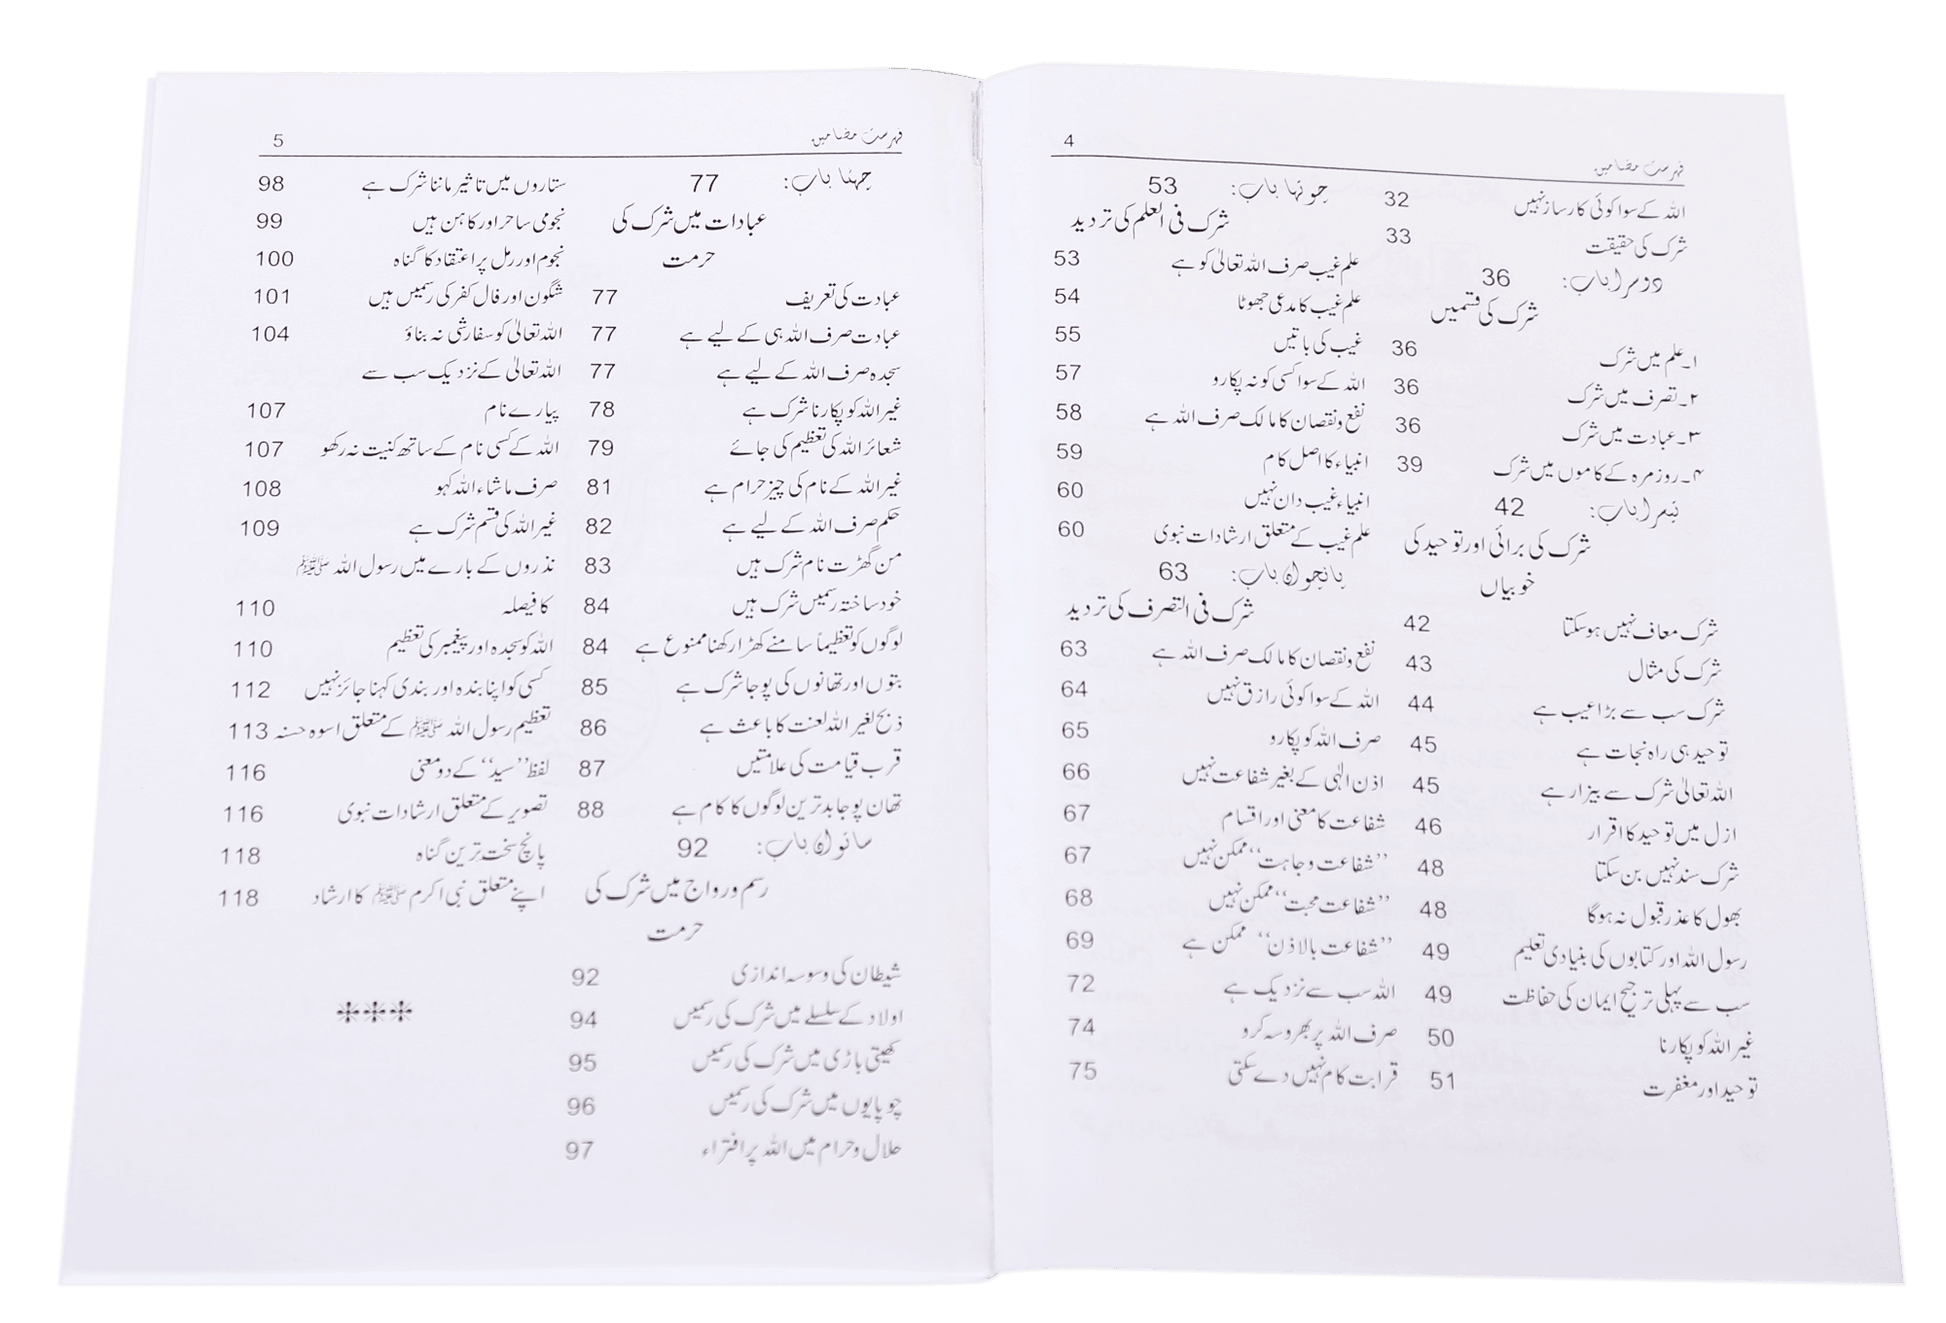 فہرست مضامین 4
اللہ کے سوا کوئی کارساز نہیں 32
شرک کی حقیقت 33
دوسرا باب: 36
شرک کی قسمیں
۱۔علم میں شرک 36
۲۔تصرف میں شرک 36
۳۔عبادت میں شرک 36
۴۔روزمرہ کے کاموں میں شرک 39
تیسرا باب: 42
شرک کی برائی اور توحید کی
خوبیاں
شرک معاف نہیں ہو سکتا 42
شرک کی مثال 43
شرک سب سے بڑا عیب ہے 44
توحید ہی راہ نجات ہے 45
اللہ تعالیٰ شرک سے بیزار ہے 45
ازل میں توحید کا اقرار 46
شرک سند نہیں بن سکتا 48
بھول کا عذر قبول نہ ہوگا 48
رسول اللہ اور کتابوں کی بنیادی تعلیم 49
سب سے پہلی ترجیح ایمان کی حفاظت 49
غیر اللہ کو پکارنا 50
توحید اور مغفرت 51
چوتھا باب: 53
شرک فی العلم کی تردید
علم غیب صرف اللہ تعالیٰ کو ہے 53
علم غیب کا مدعی جھوٹا 54
غیب کی باتیں 55
اللہ کے سوا کسی کو نہ پکارو 57
نفع و نقصان کا مالک صرف اللہ ہے 58
انبیاء کا اصل کام 59
انبیاء غیب دان نہیں 60
علم غیب کے متعلق ارشادات نبوی 60
پانچواں باب: 63
شرک فی التصرف کی تردید
نفع و نقصان کا مالک صرف اللہ ہے 63
اللہ کے سوا کوئی رازق نہیں 64
صرف اللہ کو پکارو 65
اذن الٰہی کے بغیر شفاعت نہیں 66
شفاعت کا معنی اور اقسام 67
’’شفاعت وجاہت‘‘ ممکن نہیں 67
’’شفاعت محبت‘‘ ممکن نہیں 68
’’شفاعت بالاذن‘‘ ممکن ہے 69
اللہ سب سے نزدیک ہے 72
صرف اللہ پر بھروسہ کرو 74
قرابت کام نہیں دے سکتی 75
فہرست مضامین 5
چھٹا باب: 77
عبادات میں شرک کی
حرمت
عبادت کی تعریف 77
عبادت صرف اللہ ہی کے لیے ہے 77
سجدہ صرف اللہ کے لیے ہے 77
غیر اللہ کو پکارنا شرک ہے 78
شعائر اللہ کی تعظیم کی جائے 79
غیر اللہ کے نام کی چیز حرام ہے 81
حکم صرف اللہ کے لیے ہے 82
من گھڑت نام شرک ہیں 83
خود ساختہ رسمیں شرک ہیں 84
لوگوں کو تعظیماً سامنے کھڑا رکھنا ممنوع ہے 84
بتوں اور تھانوں کی پوجا شرک ہے 85
ذبح لغیر اللہ لعنت کا باعث ہے 86
قرب قیامت کی علامتیں 87
تھان پوجا بدترین لوگوں کا کام ہے 88
ساتواں باب: 92
رسم و رواج میں شرک کی
حرمت
شیطان کی وسوسہ اندازی 92
اولاد کے سلسلے میں شرک کی رسمیں 94
کھیتی باڑی میں شرک کی رسمیں 95
چوپایوں میں شرک کی رسمیں 96
حلال و حرام میں اللہ پر افتراء 97
ستاروں میں تاثیر ماننا شرک ہے 98
نجومی ساحر اور کاہن ہیں 99
نجوم اور رمل پر اعتقاد کا گناہ 100
شگون اور فال کفر کی رسمیں ہیں 101
اللہ تعالیٰ کو سفارشی نہ بناؤ 104
اللہ تعالیٰ کے نزدیک سب سے
پیارے نام 107
اللہ کے کسی نام کے ساتھ کنیت نہ رکھو 107
صرف ماشاء اللہ کہو 108
غیر اللہ کی قسم شرک ہے 109
نذروں کے بارے میں رسول اللہ ﷺ
کا فیصلہ 110
اللہ کو سجدہ اور پیغمبر کی تعظیم 110
کسی کو اپنا بندہ اور بندی کہنا جائز نہیں 112
تعظیم رسول اللہ ﷺ کے متعلق اسوہ حسنہ 113
لفظ ’’سید‘‘ کے دو معنی 116
تصویر کے متعلق ارشادات نبوی 116
پانچ سخت ترین گناہ 118
اپنے متعلق نبی اکرم ﷺ کا ارشاد 118